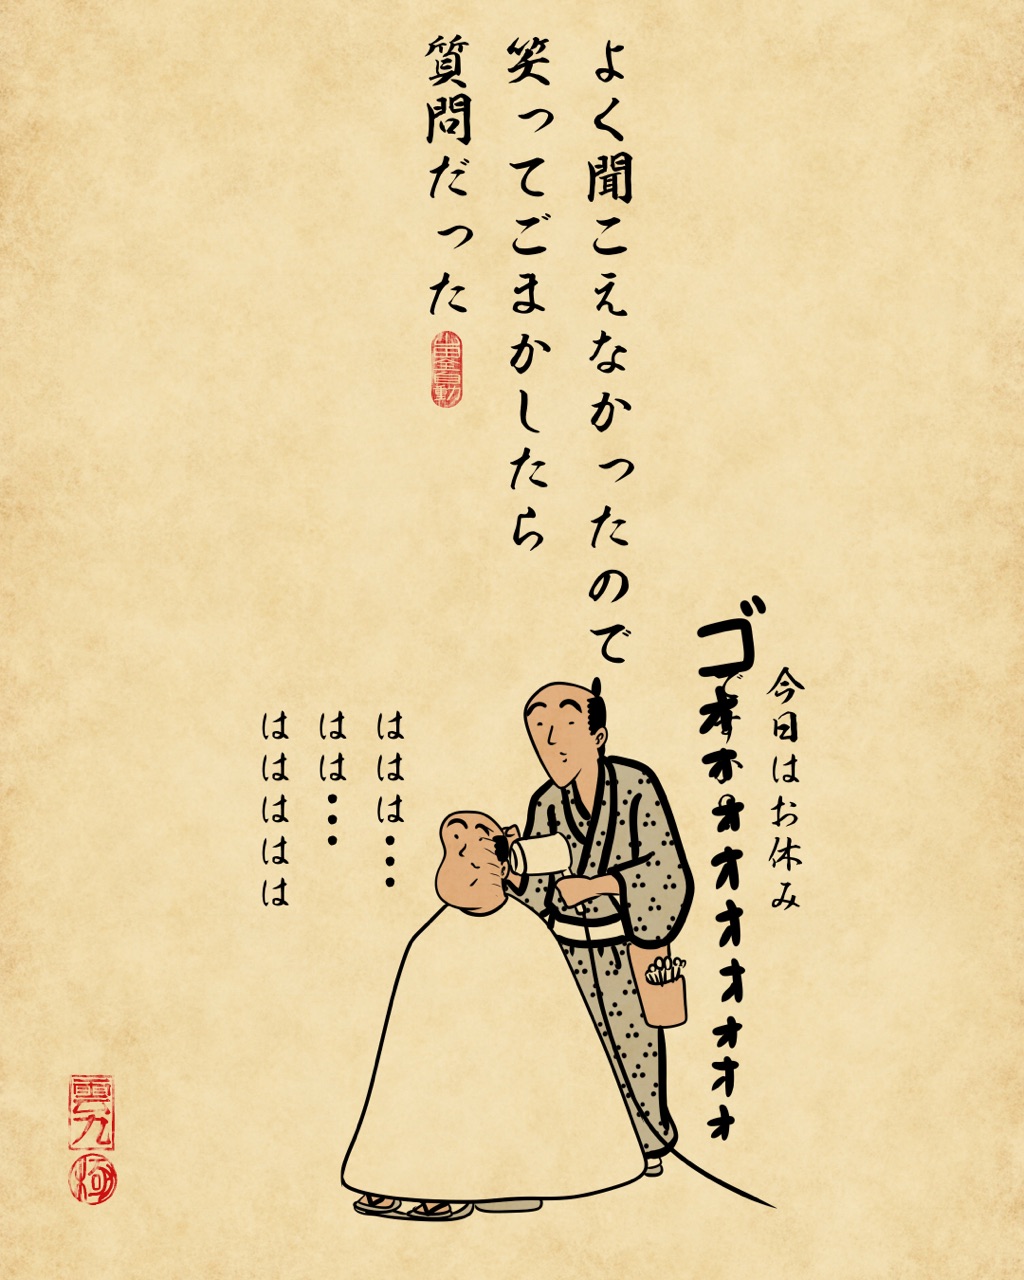 よく聞こえなかったので
笑ってごまかしたら
質問だった
今日はお休み
ゴオォォオオオォオォ
ははは・・・
はは・・・
ははははは